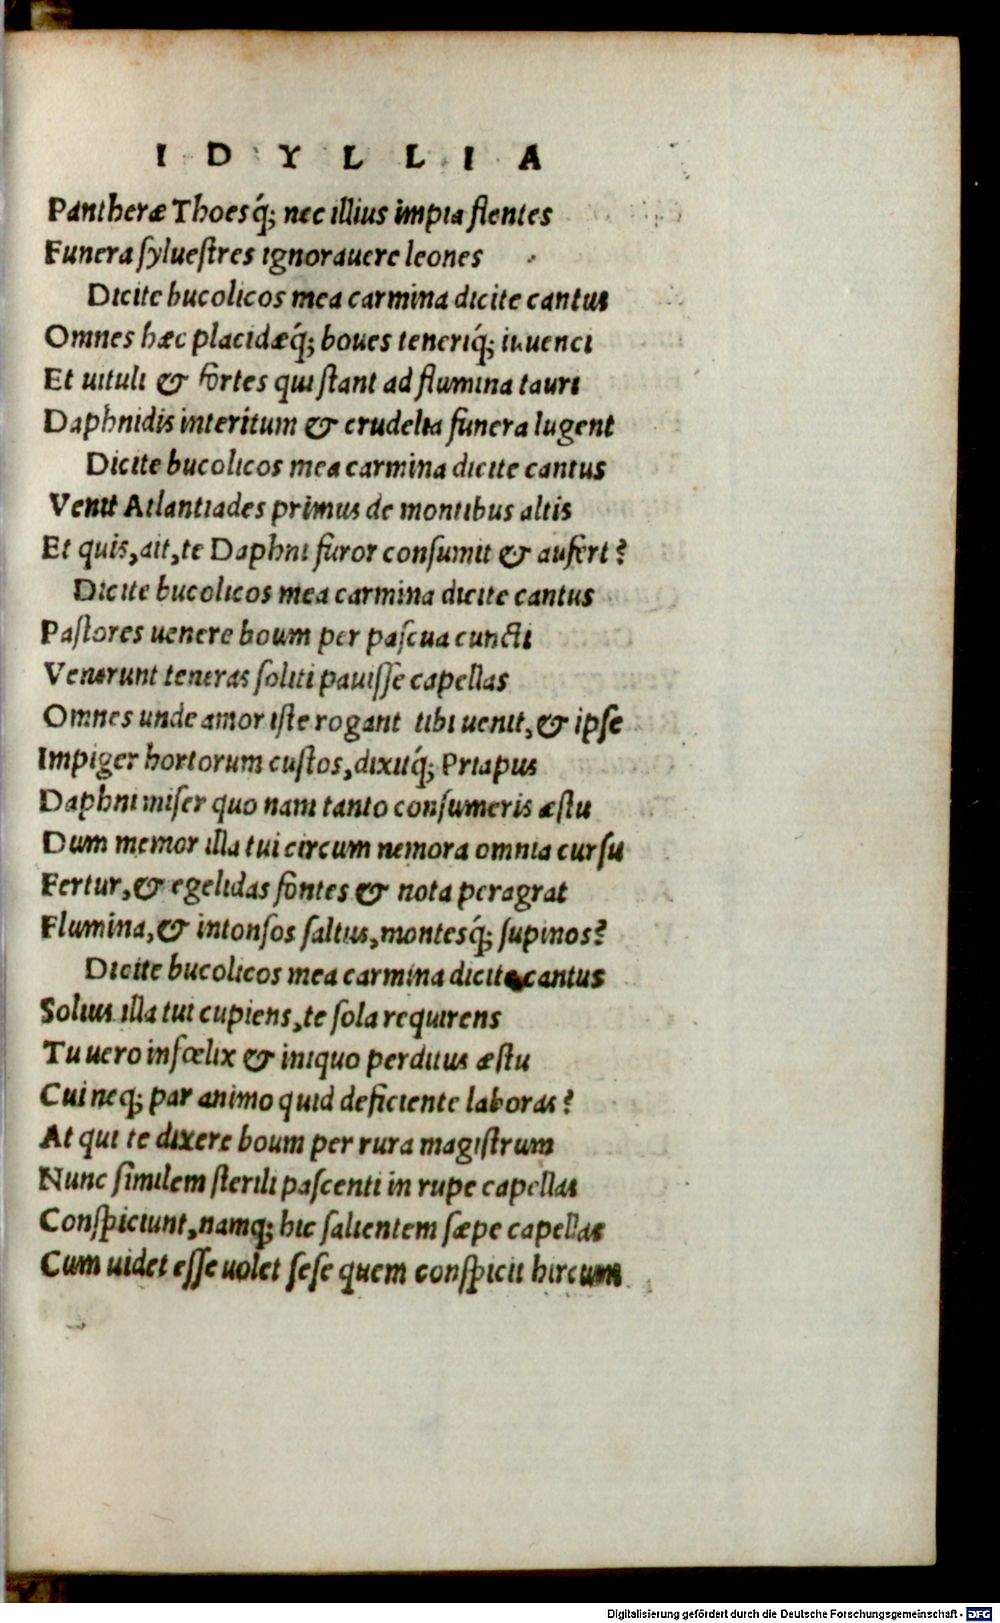 IDYLLIA
Pantheræ Thoesq́; nec illius impia flentes
Funera ſylueſtres ignorauere leones
Dicite bucolicos mea carmina dicite cantus
Omnes hæc placidæq́; boues teneriq́; iuuenci
Et uituli & fortes qui ſtant ad flumina tauri
Daphnidis interitum & crudelia funera lugent
Dicite bucolicos mea carmina dicite cantus
Venit Atlantiades primus de montibus altis
Et quis, ait, te Daphni furor conſumit & aufert?
Dicite bucolicos mea carmina dicite cantus
Paſtores uenere boum per paſcua cuncti
Venerunt teneras ſoliti pauiſſe capellas
Omnes unde amor iſte rogant tibi uenit, & ipſe
Impiger hortorum cuſtos, dixitq́; Priapus
Daphni miſer quo nam tanto conſumeris æſtu
Dum memor illa tui circum nemora omnia curſu
Fertur, & egelidas fontes & nota peragrat
Flumina, & intonſos ſaltus, montesq́; ſupinos?
Dicite bucolicos mea carmina dicite cantus
Solius illa tui cupiens, te ſola requirens
Tu uero infœlix & iniquo perditus æſtu
Cui neq; par animo quid deficiente laboras?
At qui te dixere boum per rura magiſtrum
Nunc ſimilem ſterili paſcenti in rupe capellas
Conſpiciunt, namq; hic ſalientem ſæpe capellas
Cum uidet eſſe uolet ſeſe quem conſpicit hircum
Digitalisierung gefördert durch die Deutsche Forschungsgemeinschaft - DFG